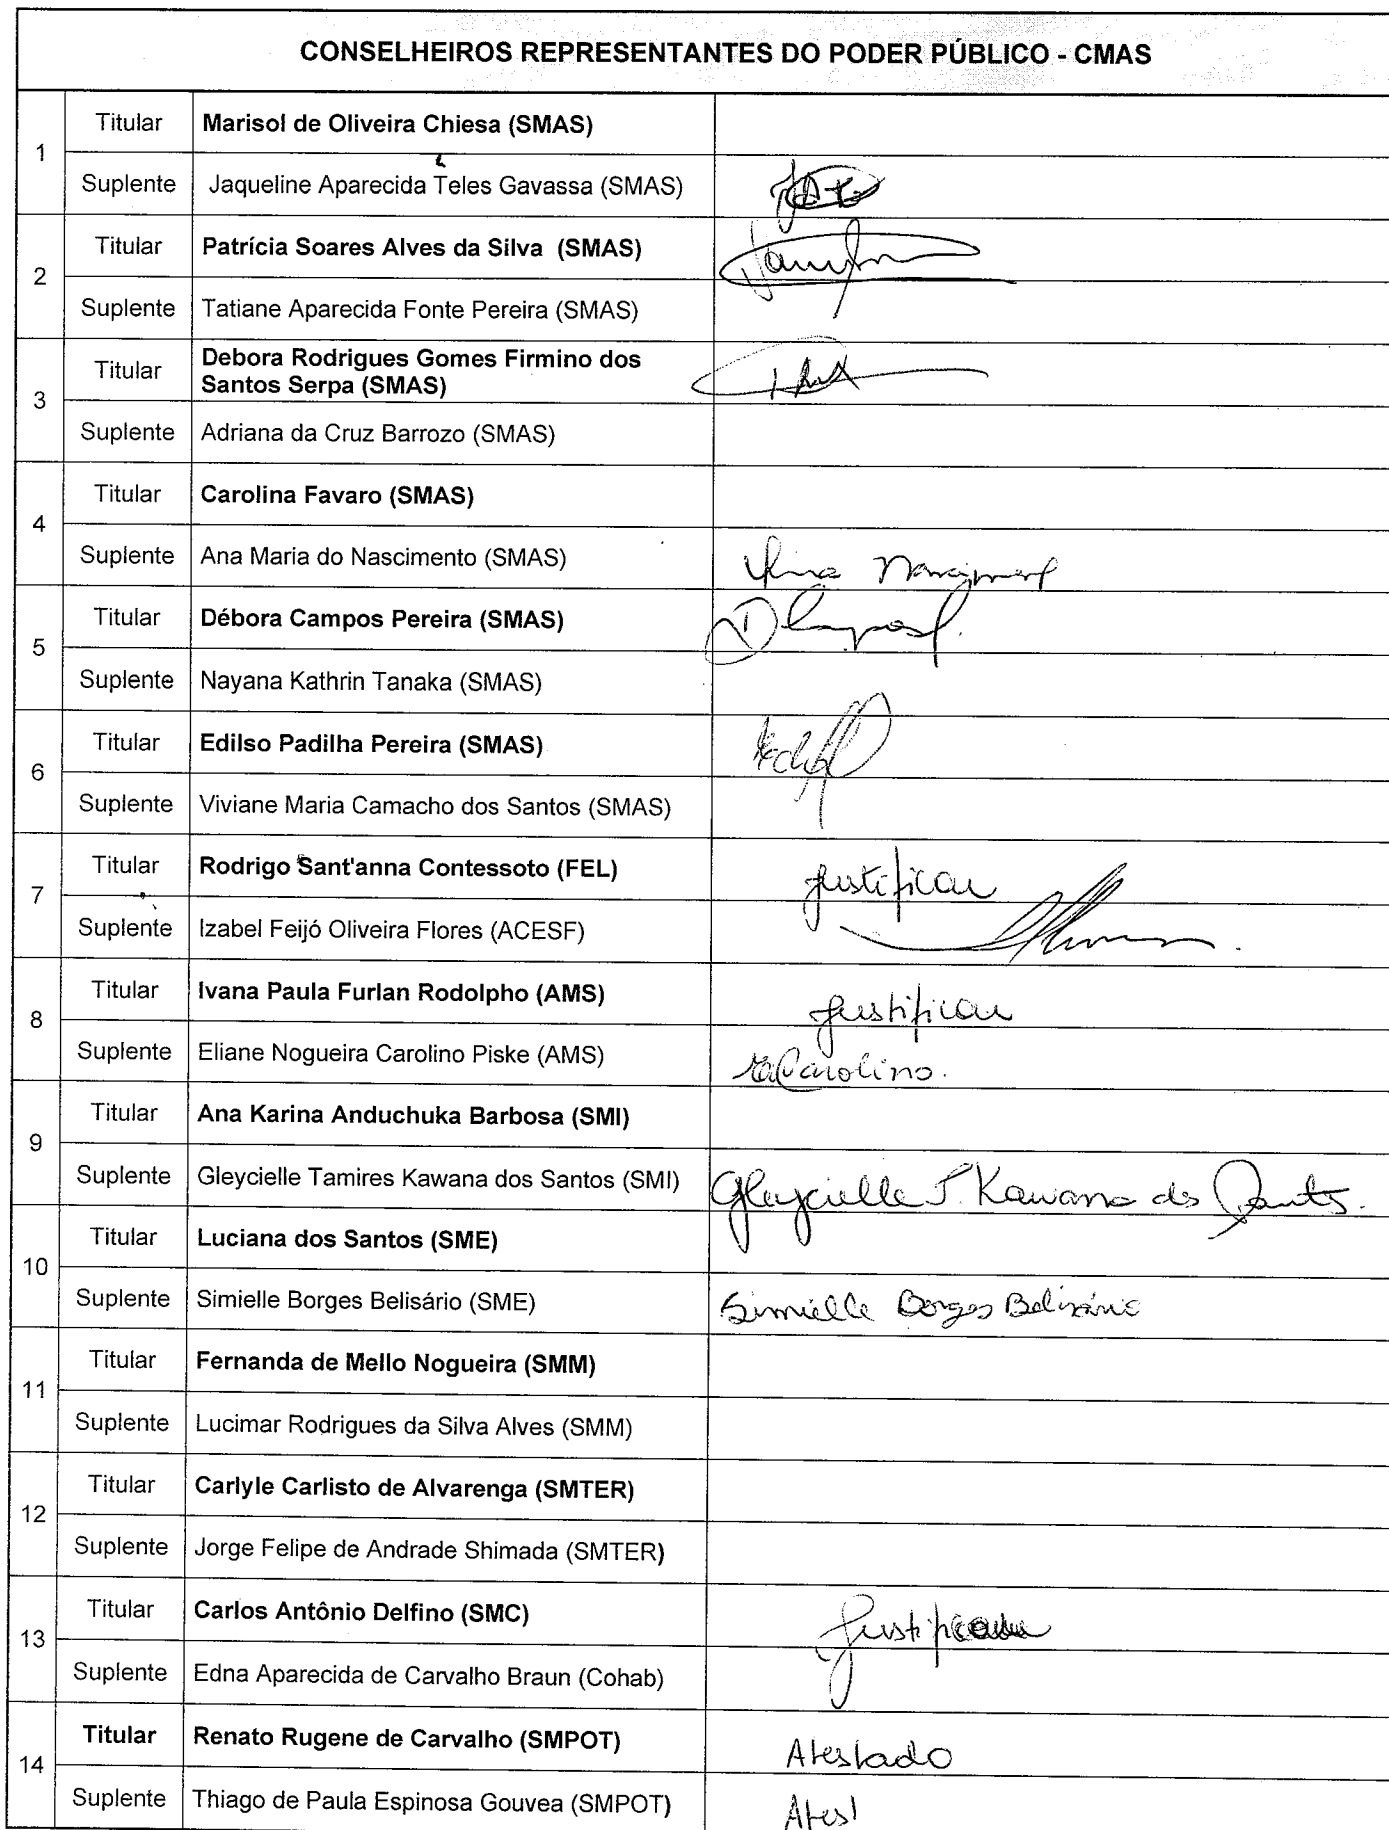 CONSELHEIROS REPRESENTANTES DO PODER PÚBLICO - CMAS
1
Titular Marisol de Oliveira Chiesa (SMAS)
Suplente Jaqueline Aparecida Teles Gavassa (SMAS)
2
Titular Patrícia Soares Alves da Silva (SMAS)
Suplente Tatiane Aparecida Fonte Pereira (SMAS)
3
Titular Debora Rodrigues Gomes Firmino dos
Santos Serpa (SMAS)
Suplente Adriana da Cruz Barrozo (SMAS)
4
Titular Carolina Favaro (SMAS)
Suplente Ana Maria do Nascimento (SMAS)
5
Titular Débora Campos Pereira (SMAS)
Suplente Nayana Kathrin Tanaka (SMAS)
6
Titular Edilso Padilha Pereira (SMAS)
Suplente Viviane Maria Camacho dos Santos (SMAS)
7
Titular Rodrigo Sant'anna Contessoto (FEL) justificou
Suplente Izabel Feijó Oliveira Flores (ACESF)
8
Titular Ivana Paula Furlan Rodolpho (AMS) justificou
Suplente Eliane Nogueira Carolino Piske (AMS) Carolino.
9
Titular Ana Karina Anduchuka Barbosa (SMI)
Suplente Gleycielle Tamires Kawana dos Santos (SMI) Gleycielle T. Kawana dos Santos.
10
Titular Luciana dos Santos (SME)
Suplente Simielle Borges Belisário (SME) Simielle Borges Belisário
11
Titular Fernanda de Mello Nogueira (SMM)
Suplente Lucimar Rodrigues da Silva Alves (SMM)
12
Titular Carlyle Carlisto de Alvarenga (SMTER)
Suplente Jorge Felipe de Andrade Shimada (SMTER)
13
Titular Carlos Antônio Delfino (SMC) justificou
Suplente Edna Aparecida de Carvalho Braun (Cohab)
14
Titular Renato Rugene de Carvalho (SMPOT) Atestado
Suplente Thiago de Paula Espinosa Gouvea (SMPOT) Atest